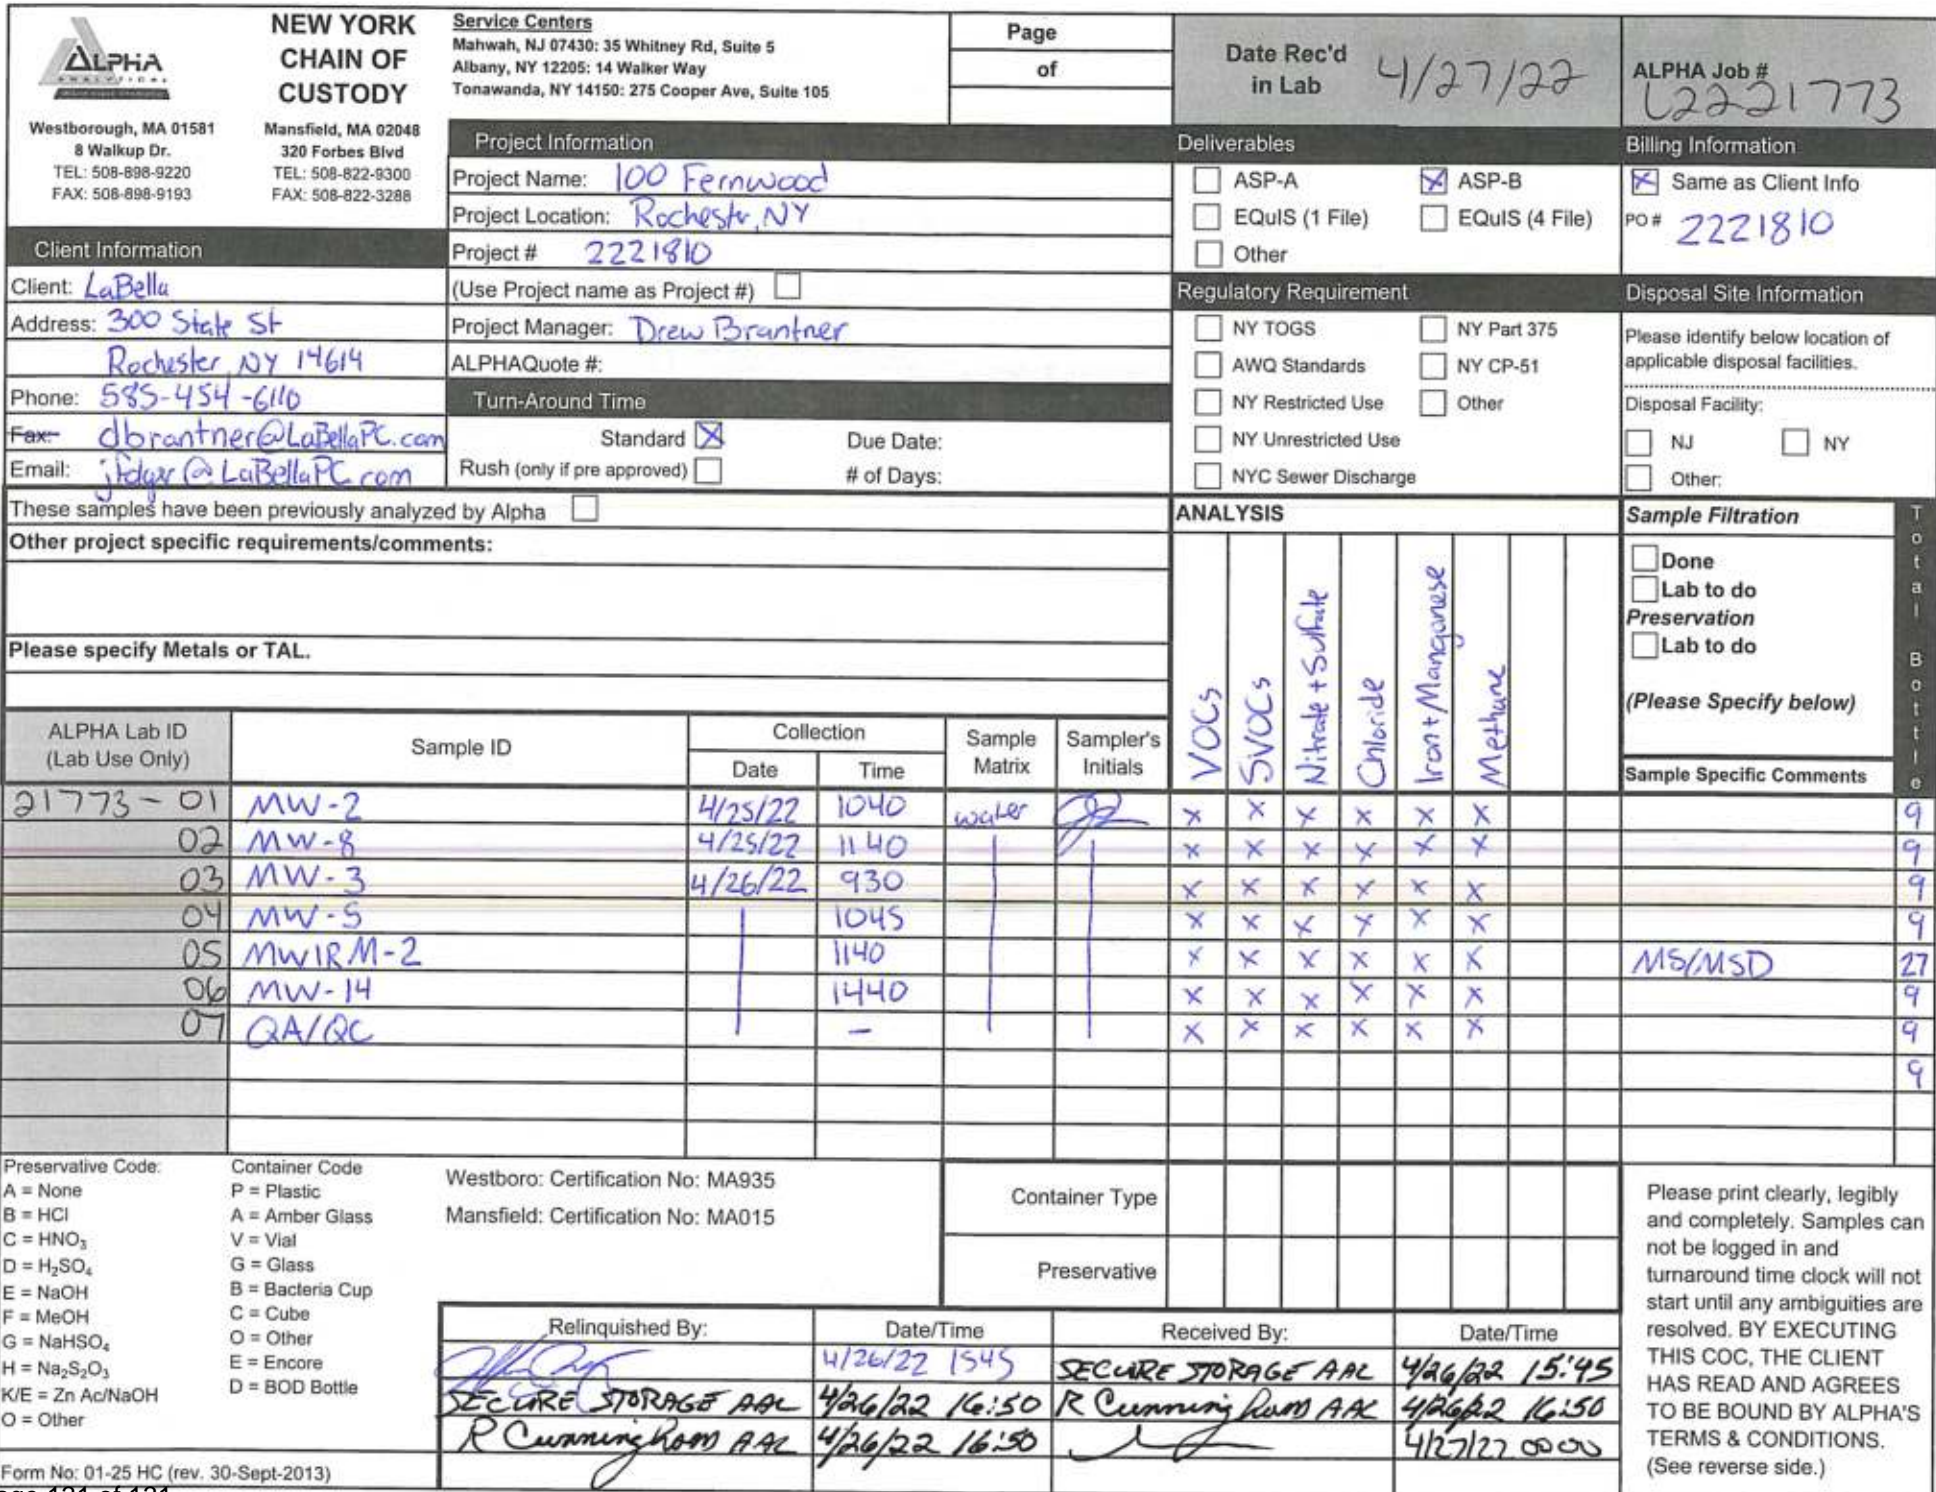 ALPHA
ANALYTICAL
Westborough, MA 01581
8 Walkup Dr.
TEL: 508-898-9220
FAX: 508-898-9193
NEW YORK
CHAIN OF
CUSTODY
Mansfield, MA 02048
320 Forbes Blvd
TEL: 508-822-9300
FAX: 508-822-3288
Service Centers
Mahwah, NJ 07430: 35 Whitney Rd, Suite 5
Albany, NY 12205: 14 Walker Way
Tonawanda, NY 14150: 275 Cooper Ave, Suite 105
Page
of
Date Rec'd
in Lab 4/27/22
ALPHA Job #
L2221773
Client Information
Client: LaBella
Address: 300 State St
Rochester, NY 14614
Phone: 585-454-6110
Fax: dbrantner@LaBellaPC.com
Email: @LaBellaPC.com
Project Information
Project Name: 100 Fernwood
Project Location: Rochestr, NY
Project # 2221810
(Use Project name as Project #)
Project Manager: Drew Brantner
ALPHAQuote #:
Turn-Around Time
Standard X Due Date:
Rush (only if pre approved) # of Days:
Deliverables
ASP-A X ASP-B
EQuIS (1 File) EQuIS (4 File)
Other
Regulatory Requirement
NY TOGS NY Part 375
AWQ Standards NY CP-51
NY Restricted Use Other
NY Unrestricted Use
NYC Sewer Discharge
Billing Information
X Same as Client Info
PO # 2221810
Disposal Site Information
Please identify below location of
applicable disposal facilities.
Disposal Facility:
NJ NY
Other:
These samples have been previously analyzed by Alpha
Other project specific requirements/comments:
Please specify Metals or TAL.
ANALYSIS
VOCs
SVOCs
Nitrate + Sulfate
Chloride
Iron + Manganese
Methane
Sample Filtration
Done
Lab to do
Preservation
Lab to do
(Please Specify below)
Sample Specific Comments
Total Bottle
ALPHA Lab ID
(Lab Use Only)
Sample ID
Collection
Date Time
Sample
Matrix
Sampler's
Initials
21773-01 MW-2 4/25/22 1040 water X X X X X X 9
02 MW-8 4/25/22 1140 X X X X X X 9
03 MW-3 4/26/22 930 X X X X X X 9
04 MW-5 1045 X X X X X X 9
05 MWIRM-2 1140 X X X X X X MS/MSD 27
06 MW-14 1440 X X X X X X 9
07 QA/QC — X X X X X X 9
9
Preservative Code:
A = None
B = HCl
C = HNO3
D = H2SO4
E = NaOH
F = MeOH
G = NaHSO4
H = Na2S2O3
K/E = Zn Ac/NaOH
O = Other
Container Code
P = Plastic
A = Amber Glass
V = Vial
G = Glass
B = Bacteria Cup
C = Cube
O = Other
E = Encore
D = BOD Bottle
Westboro: Certification No: MA935
Mansfield: Certification No: MA015
Container Type
Preservative
Relinquished By: Date/Time Received By: Date/Time
4/26/22 1545 SECURE STORAGE AAL 4/26/22 15:45
SECURE STORAGE AAL 4/26/22 16:50 R Cunningham AAL 4/26/22 16:50
R Cunningham AAL 4/26/22 16:50 4/27/22 0000
Please print clearly, legibly
and completely. Samples can
not be logged in and
turnaround time clock will not
start until any ambiguities are
resolved. BY EXECUTING
THIS COC, THE CLIENT
HAS READ AND AGREES
TO BE BOUND BY ALPHA'S
TERMS & CONDITIONS.
(See reverse side.)
Form No: 01-25 HC (rev. 30-Sept-2013)